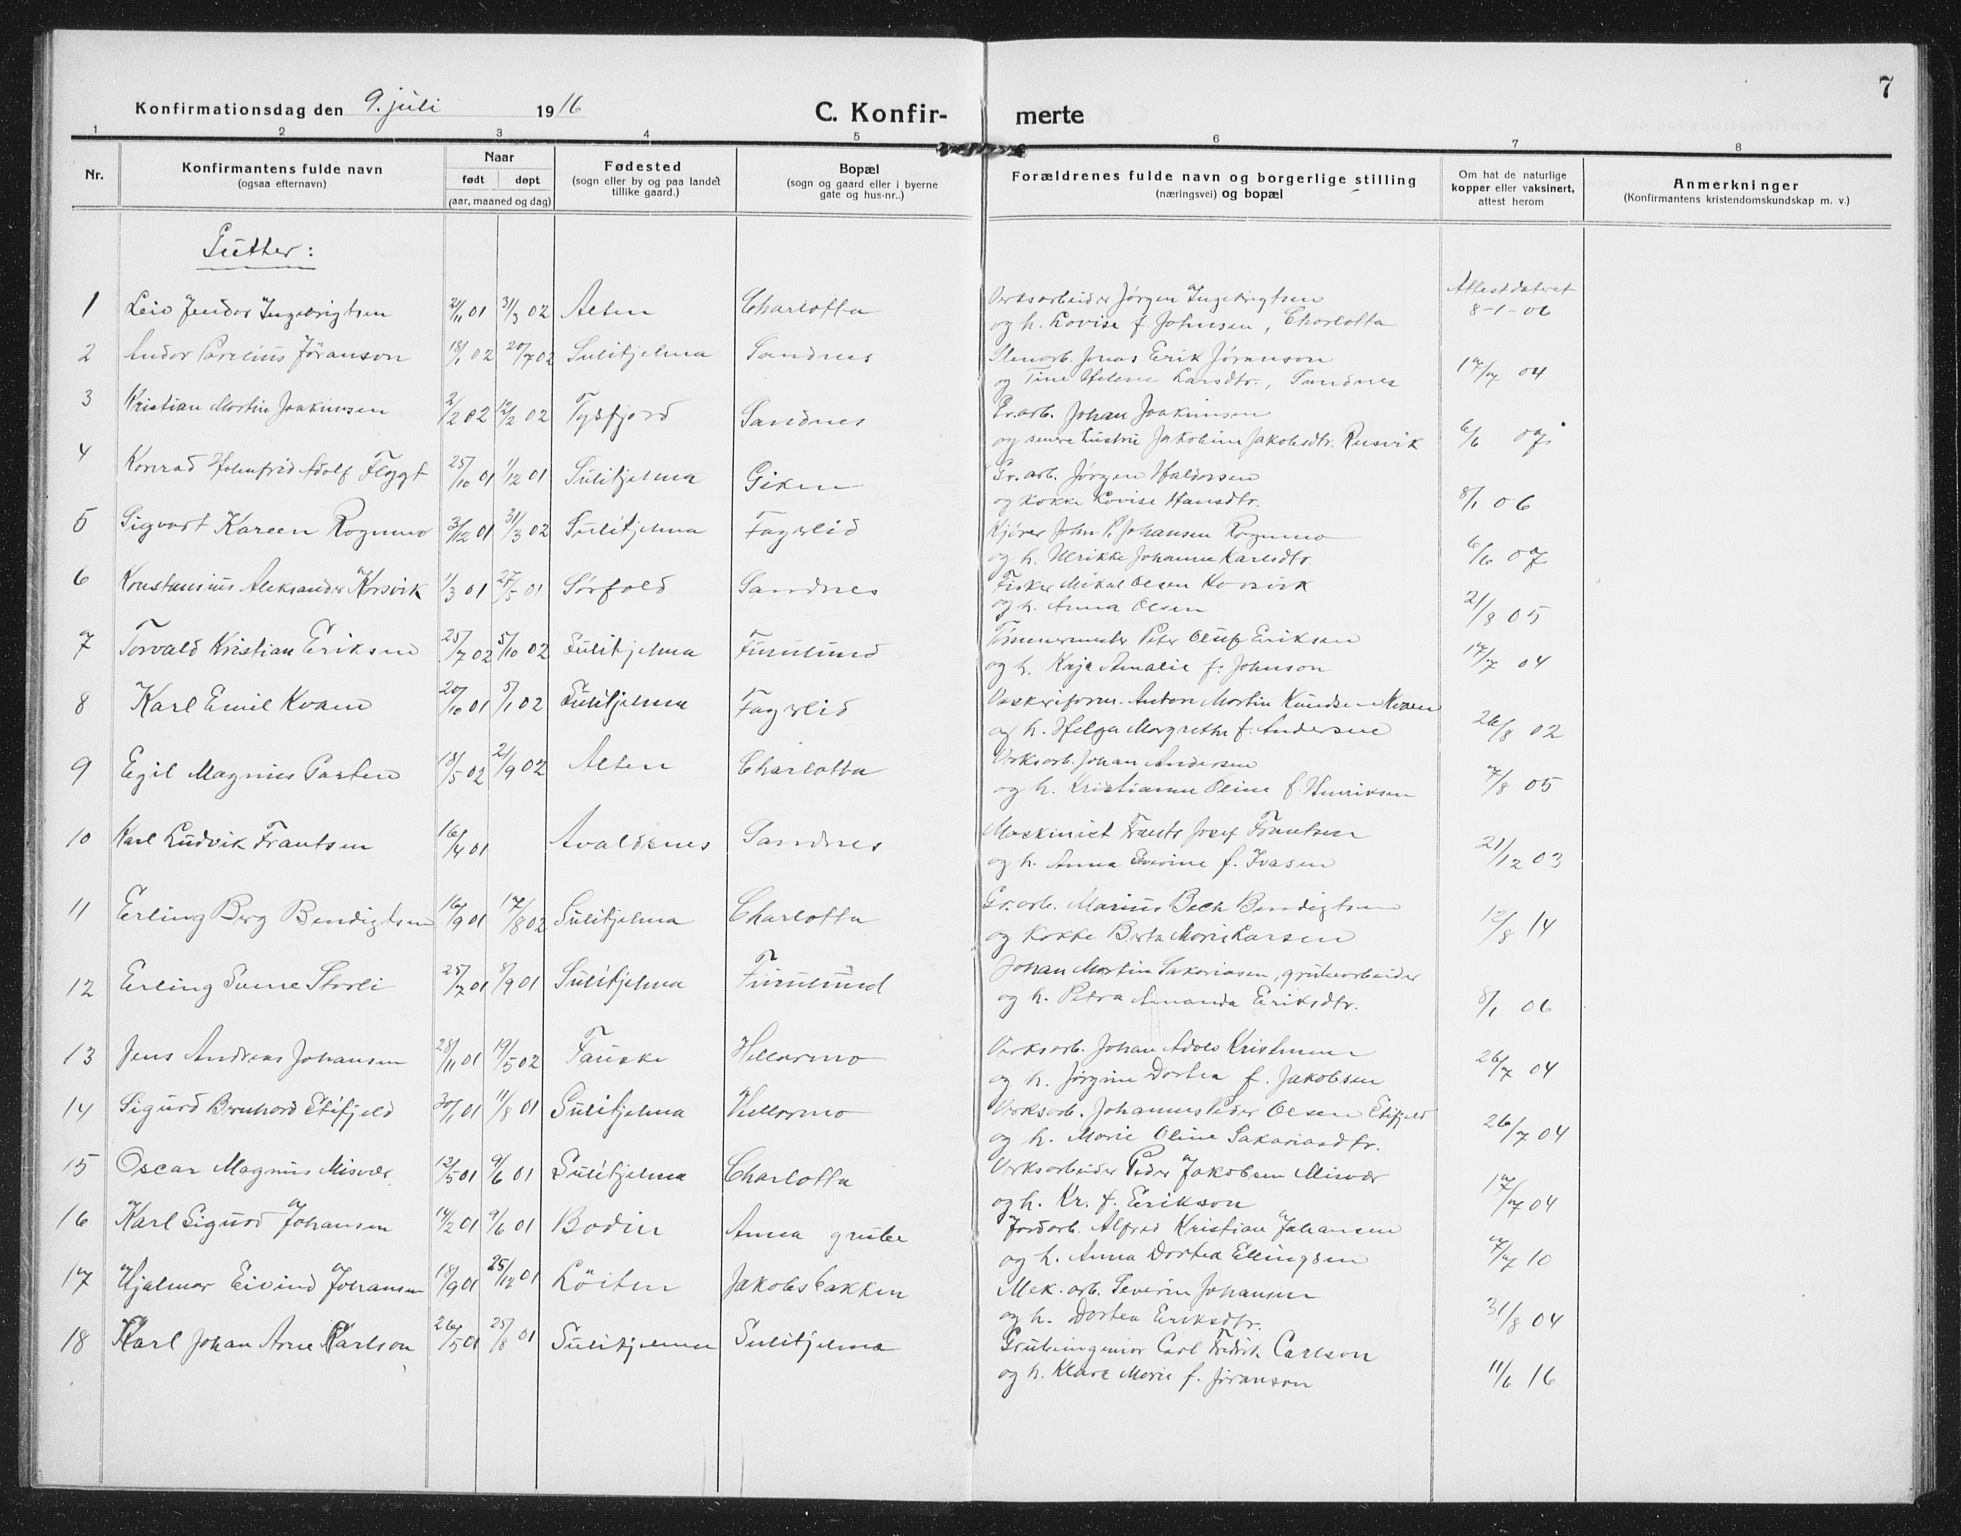 7
Konfirmationsdag den 9. juli 1916
C. Konfir- merte
1 2 3 4 5 6 7 8
Nr.
Konfirmantens fulde navn
(ogsaa efternavn)
Naar
født døpt
(aar, maaned og dag)
Fødested
(sogn eller by og paa landet
tillike gaard.)
Bopæl
(sogn og gaard eller i byerne
gate og hus-nr..)
Forældrenes fulde navn og borgerlige stilling
(næringsvei) og bopæl
Om hat de naturlige
kopper eller vaksinert,
attest herom
Anmerkninger
(Konfirmantens kristendomskundskap m. v.)
Gutter:
Attest dateret
1 Leiv Ingebrigtsen 01 31/3 02 Alten Charlotta Verksarbeider Jørgen Ingebrigtsen 8-1-06
og h. Lovise f. Johnsen, Charlotta
2 Andor Parelius Jöranson 18/1 02 20/7 02 Sulitjelma Sandnes Stenarb. Jonas Erik Jøranson 17/7 04
og Tine Helene Larsdtr., Sandnes
3 Kristian Martin Joakimsen 2/2 02 12/2 02 Tysfjord Sandnes Gr.arb. Johan Joakimsen 6/6 07
og Jakobine Jakobsdtr. Rusvik
4 Konrad Holmfrid Adolf Flygt 25/10 01 1/12 01 Sulitjelma Giken Gr.arb. Jørgen Haldorsen 8/1 06
og kokke Lovise Hansdtr.
5 Sigvart Kareen Rognmo 3/12 01 31/3 02 Sulitjelma Fagerlid Kjører John P. Johansen Rognmo 6/6 07
og h. Ulrikke Johanne Karlsdtr.
6 Konstansius Aleksander Korsvik 1/3 01 27/5 01 Sørfold Sandnes Fisker Mikal Olsen Korsvik 21/8 05
og h. Anna Olsen
7 Torvald Kristian Eriksen 25/7 02 5/10 02 Sulitjelma Furulund Tømmermester Peter Oluf Eriksen 17/7 04
og h. Kaja Amalie f. Johnson
8 Karl Emil Kvam 20/10 01 5/1 02 Sulitjelma Fagerlid Vaskeriform. Anton Martin Knudsen Kvam 26/8 02
og h. Helga Margrethe f. Andersen
9 Egil Magnus Parten 18/5 02 21/9 02 Alten Charlotta Verksarb. Johan Andersen 7/8 05
og h. Kristianne Oline f. Henriksen
10 Karl Ludvik Frantsen 16/4 01 Avaldsnes Sandnes Maskinist Frants Josef Frantsen 21/12 03
og h. Anna f. Ivasen
11 Erling Berg Bendigtsen 16/9 01 17/8 02 Sulitjelma Charlotta Gr.arb. Marius Bech Bendigtsen 12/8 14
og kokke Berta Marie Larsen
12 Erling Sverre Storli 25/7 01 8/9 01 Sulitjelma Furulund Johan Martin Sakariasen, grubearbeider 8/1 06
og h. Petra Amanda Eriksdtr.
13 Jens Andreas Johansen 28/11 01 19/5 02 Fauske Hellarmo Verksarb. Johan Adolv Kristensen 26/7 04
og h. Jørgine Dortea f. Jakobsen
14 Sigurd Bernhard Etifjeld 30/1 01 11/8 01 Sulitjelma Hellarmo Verksarb. Johannes Peder Olsen Etifjeld 26/7 04
og h. Marie Oline Sakariasdtr.
15 Oscar Magnus Misvær 12/5 01 9/6 01 Sulitjelma Charlotta Verksarbeider Peder Jakobsen Misvær 17/7 04
og h. Kr. f. Erikson
16 Karl Sigurd Johansen 14/2 01 9/6 01 Bodin Anna grube Jordarb. Alfred Kristian Johansen 7/7 10
og h. Anna Dortea Ellingsen
17 Hjalmar Eivind Johansen 18/9 01 25/12 01 Löiten Jakobsbakken Mek. arb. Severin Johansen 31/8 04
og h. Dortea Eriksdtr.
18 Karl Johan Arne Karlson 26/5 01 25/8 01 Sulitjelma Sulitjelma Grubeingeniør Carl Fredrik Carlson 11/6 16
og h. Klara Marie f. Jøranson